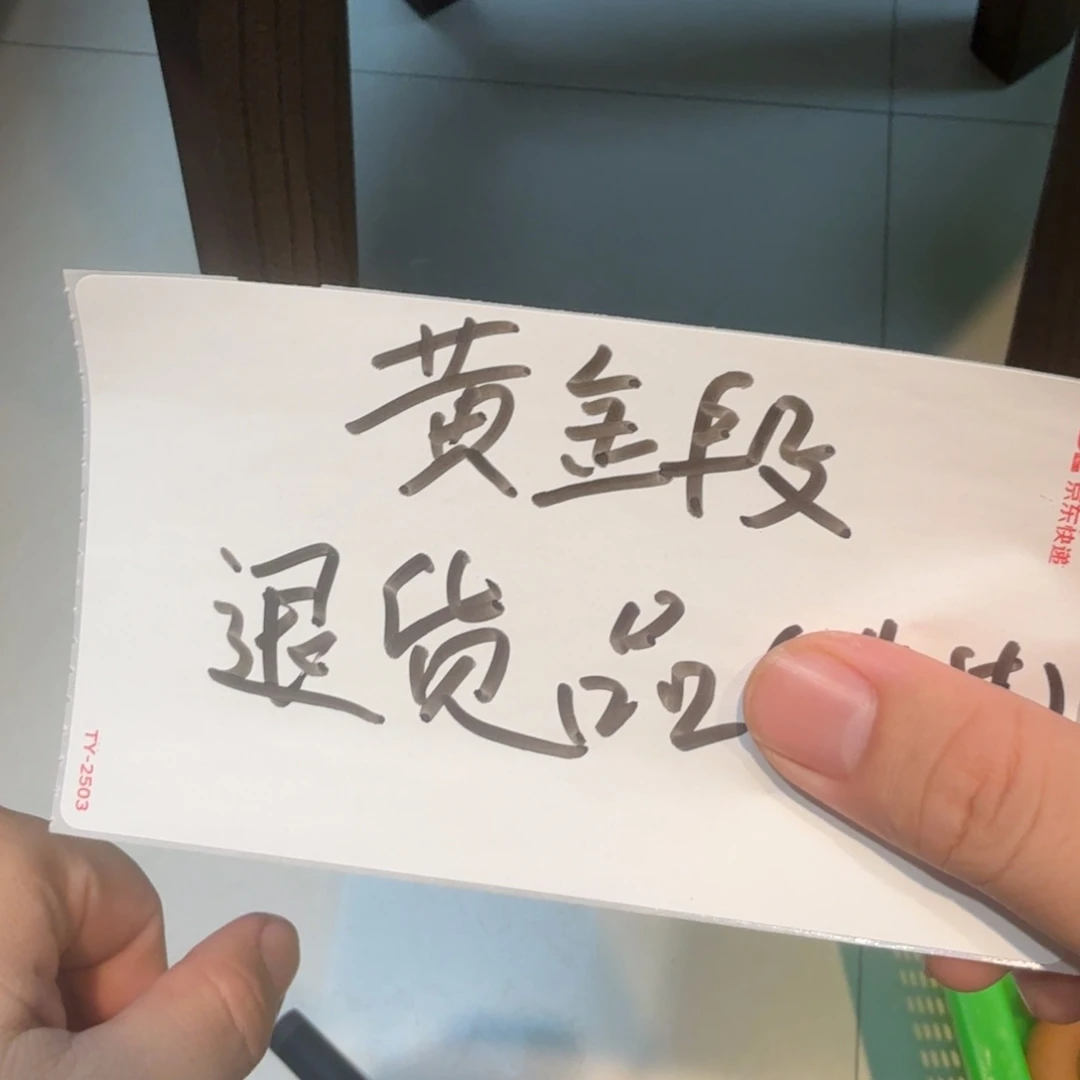 黄金段
退货品
京东快递
TY-2503